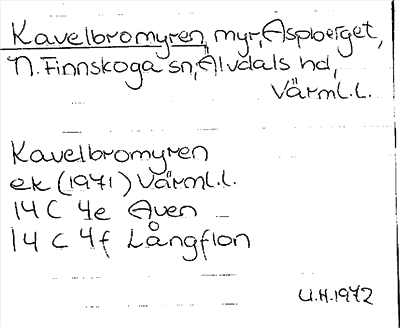 Kavelbromyren, myr, Aspberget,
N. Finnskoga sn, Älvdals hd,
Värml.l.
Kavelbromyren
ek (1971) Värml.l.
14 C 4e Aven
14 C 4f Långflon
U.H.1972